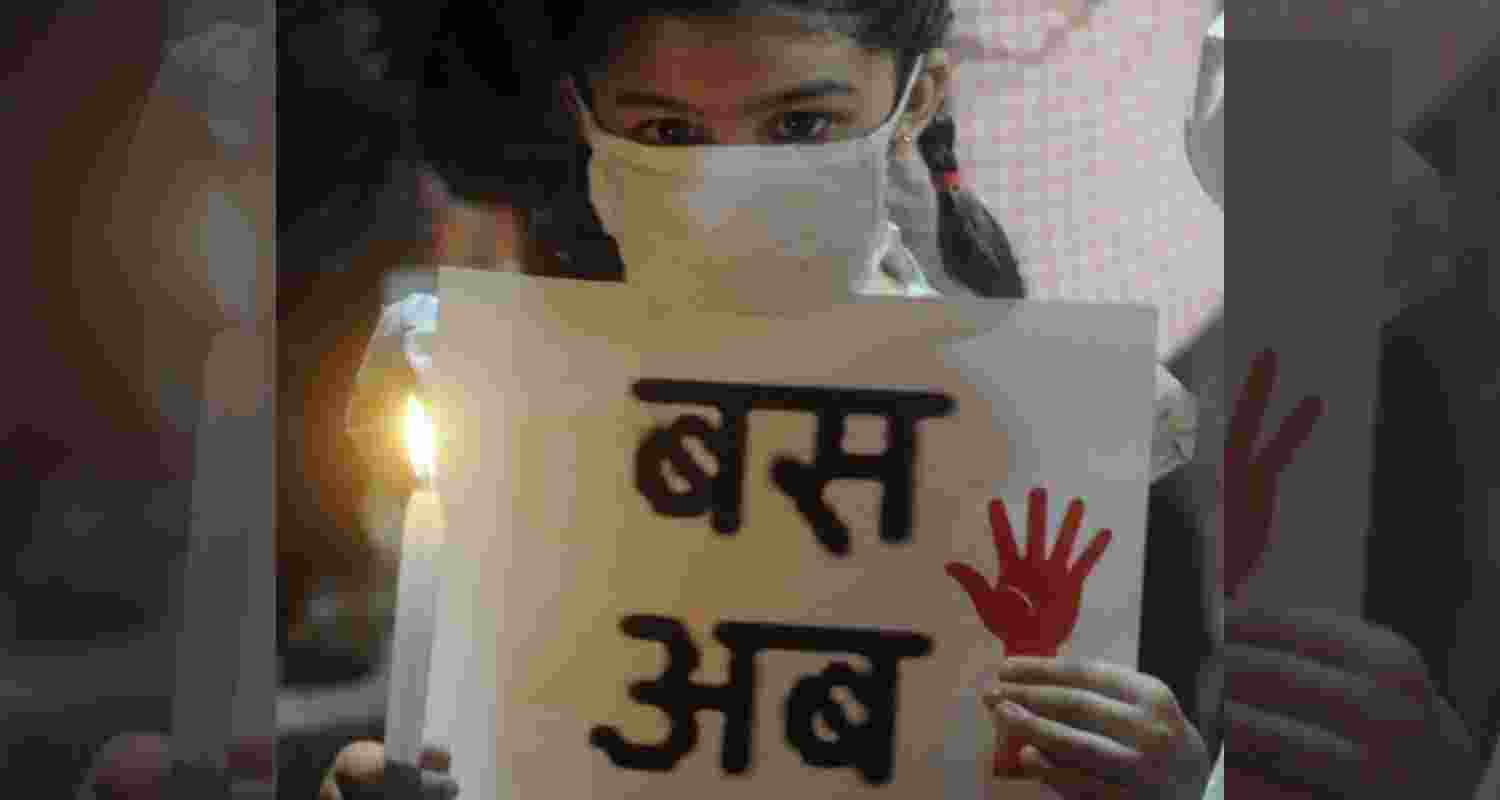 बस
अब